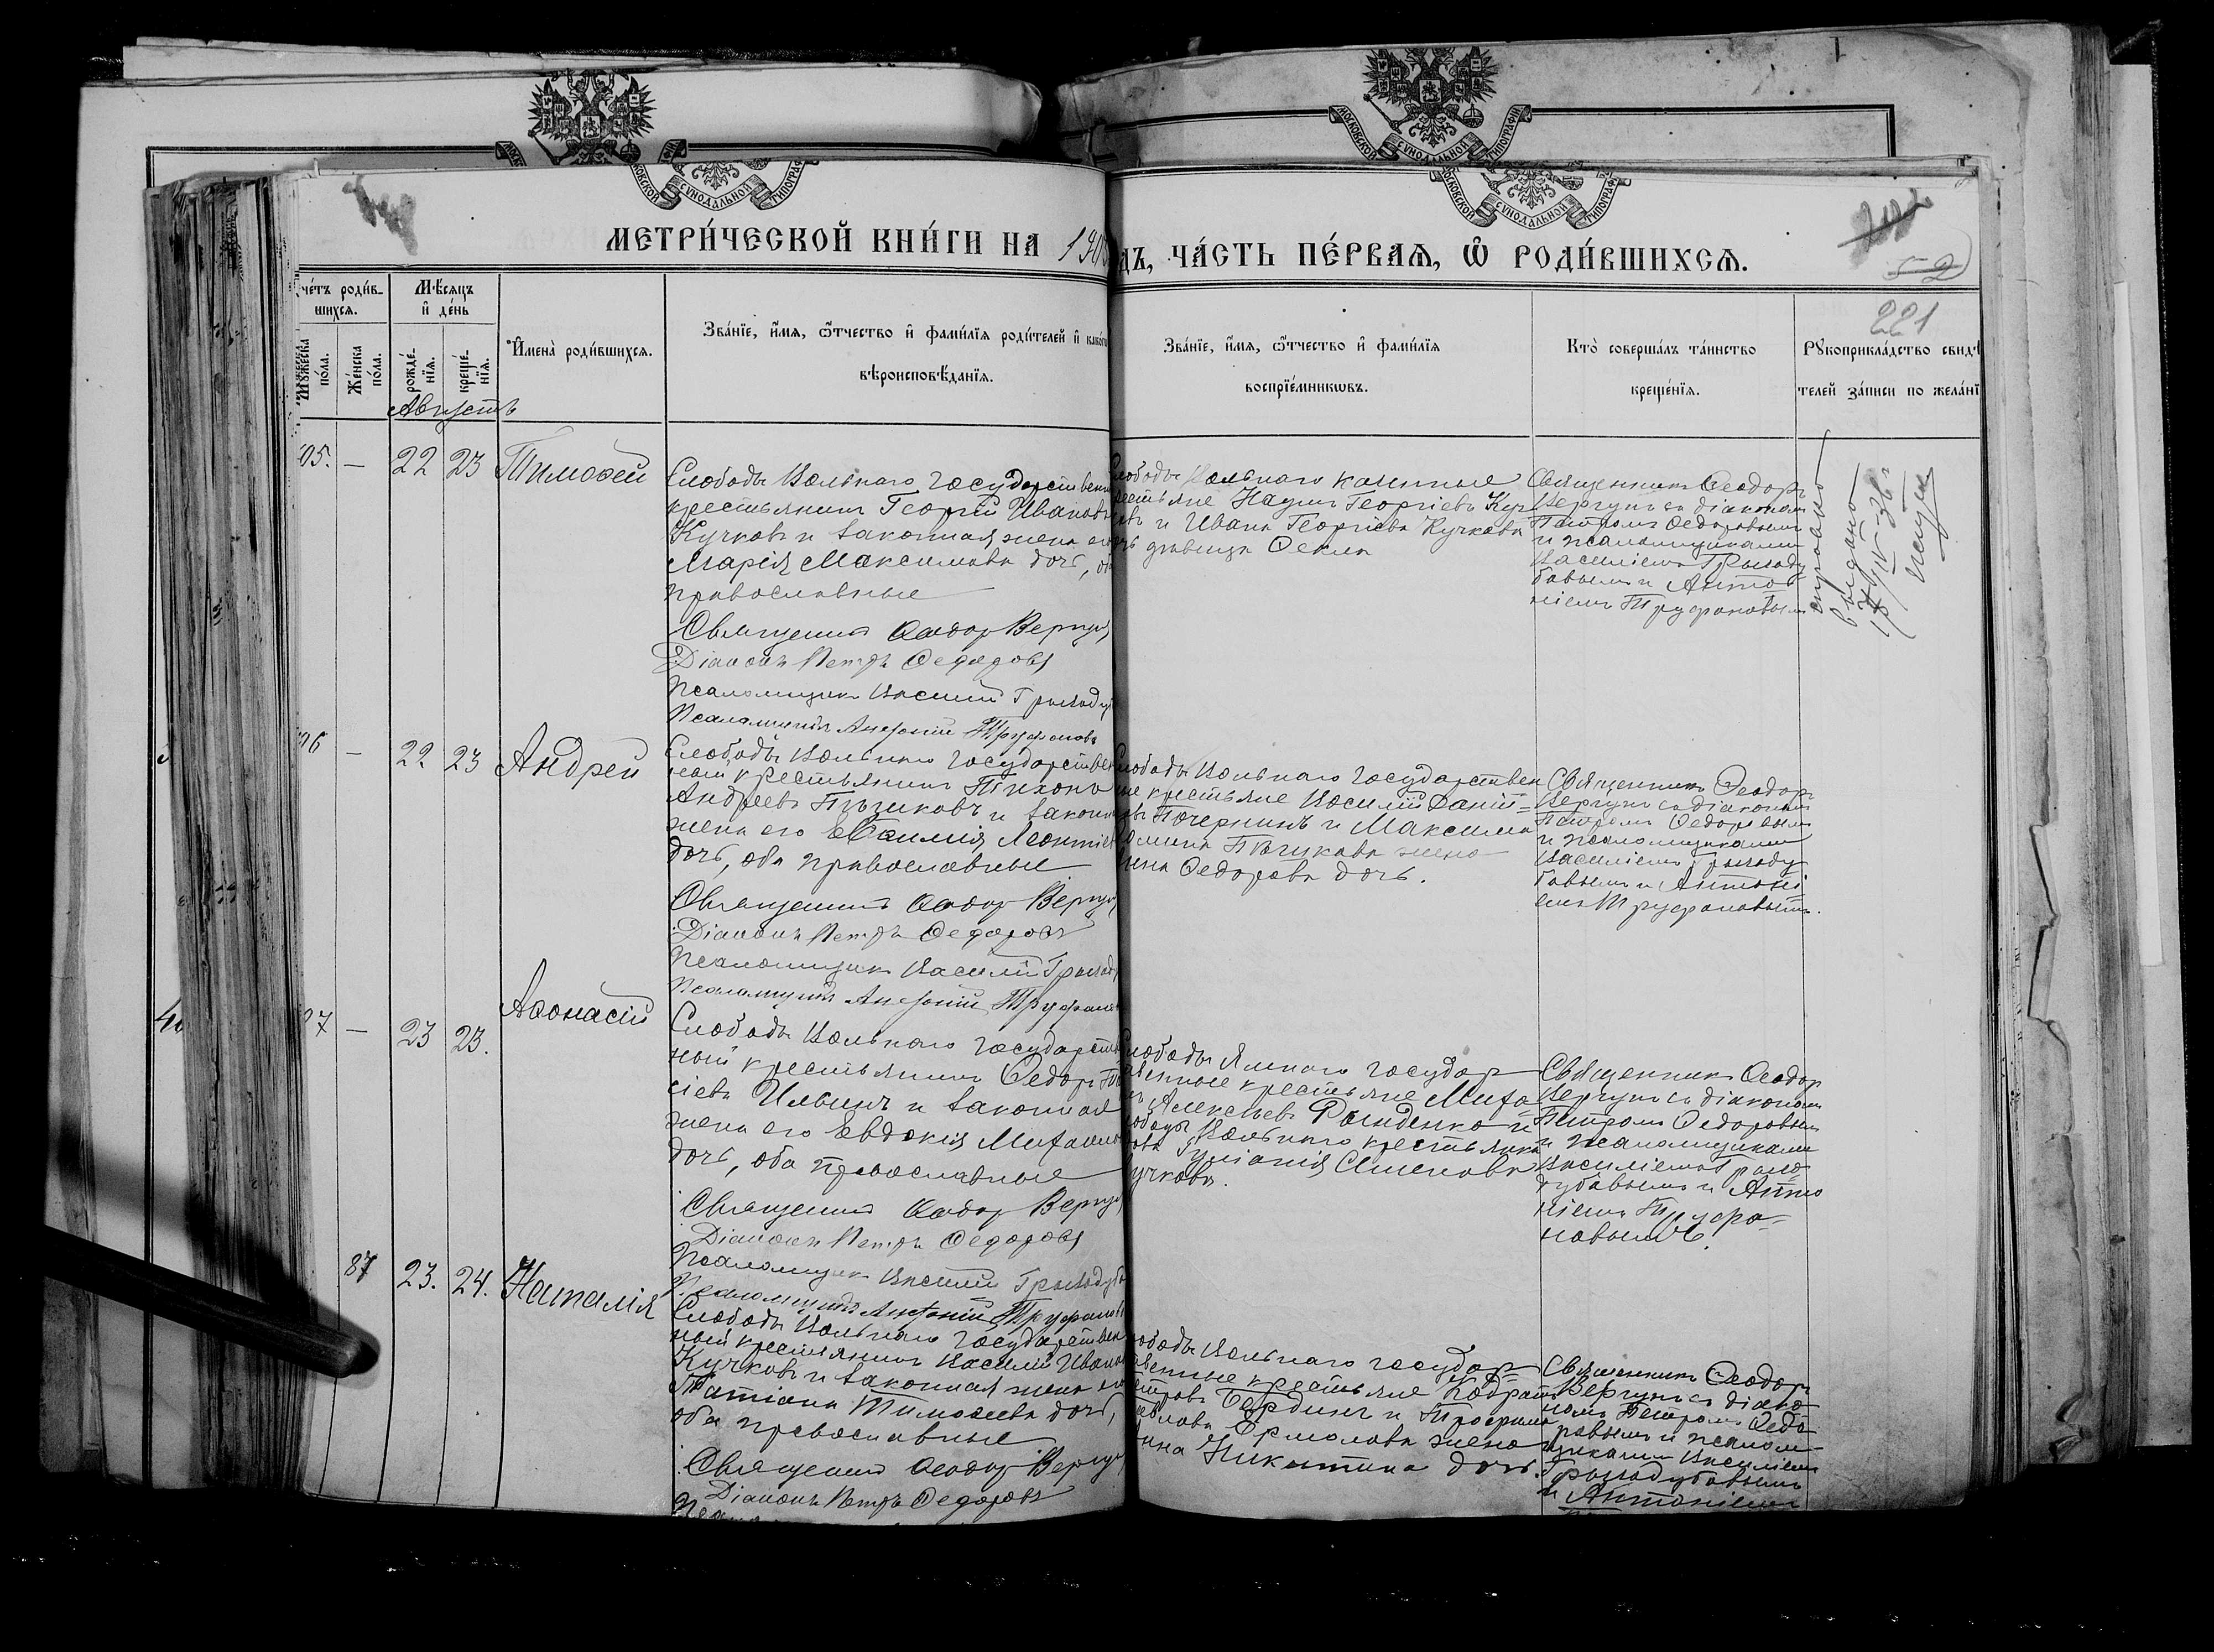 МОСКОВСКОЙ СУНОДАЛЬНОЙ ТИПОГРАФІИ
СУНОДАЛЬНОЙ
МЕТРИ́ЧЕСКОЙ КНИ́ГИ НА 1905
ДЪ, ЧА́СТЬ ПЕ́РВАЯ, Ѽ РОДИ́ВШИХСЯ.
52
221
че́тъ роди́в-
шихся.
Мѣ́сяцъ
и҆ де́нь
Му́жеска по́ла.
Же́нска по́ла.
рожде́-нїя.
креще́-нїя.
И҆мена̀ роди́вшихся.
Зва́нїе, и҆́мя, ѻ҆́тчество и҆ фами́лїя роди́телей и҆ како́гѡ
вѣроисповѣ́данїя.
Зва́нїе, и҆́мя, ѻ҆́тчество и҆ фами́лїя
воспрїе́мникѡвъ.
Кто̀ соверша́лъ та́инство
креще́нїя.
Рꙋкоприкла́дство свидѣ
телей за́писи по жела́нї
Августъ
05. — 22 23 Тимоѳей
Слободы Вольнаго государствен
крестьянинъ Георгій Ивановъ
Кучковъ и законная жена его
Марія Максимова дочь, оба
православные
Священникъ Ѳеодор Вергун
Діаконъ Петръ Ѳедоровъ
Псаломщикъ Василій Грызодуб
Псаломщикъ Антоній Труфановъ
Слободы Вольнаго казенные
крестьяне Наумъ Георгіевъ Куч
ковъ и Ивана Георгіева Кучкова
дочь дѣвица Ѳекла
Священникъ Ѳеодоръ
Вергунъ съ діакономъ
Петромъ Ѳедоровымъ
и псаломщиками
Василіемъ Грызоду
бовымъ и Анто
ніемъ Труфановымъ
выдано
06 — 22 23 Андрей
Слободы Вольнаго государствен
ный крестьянинъ Тихонъ
Андреевъ Пѣгуковъ и законная
жена его Евѳимія Леонтіева
дочь, оба православные
Священникъ Ѳеодор Вергун
Діаконъ Петръ Ѳедоровъ
Псаломщикъ Василій Грызод
Псаломщикъ Антоній Труфанов
Слободы Вольнаго государствен
ные крестьяне Василій Даніи-
ловъ и Максима
жена
Ѳедорова дочь.
Священникъ Ѳеодоръ
Вергунъ съ діакономъ
Петромъ Ѳедоровымъ
и псаломщиками
Василіемъ Грызоду
бовымъ и Антоні
емъ Труфановымъ.
07 — 23 23. Аѳонасій
Слободы Вольнаго государствен
ный крестьянинъ Ѳедоръ
сіевъ Ильинъ и законная
жена его Евдокія Митрофанова
дочь, оба православные
Священникъ Ѳеодор Вергун
Діаконъ Петръ Ѳедоровъ
Псаломщикъ Василій Грызодуб
Псаломщикъ Антоній Труфановъ
Слободы Ямного государ
ственные крестьяне Митро
Алексѣевъ Рынденко и
слободы Вольнаго крестьянка
Іуліанія Семенова
Кучкова.
Священникъ Ѳеодор
Вергунъ съ діакономъ
Петромъ Ѳедоровымъ
и псаломщиками
Василіемъ Грызо
дубовымъ и Анто
ніемъ Труфа-
новымъ.
87 23. 24. Наталія
Слободы Вольнаго государствен
ный крестьянинъ Василій Иванов
Кучковъ и законная жена его
Татіана Тимоѳеева дочь,
оба православные
Священникъ Ѳеодор Вергун
Діаконъ Петръ Ѳедоровъ
Слободы Вольнаго государ-
ственные крестьяне Кодратъ
Петровъ Бердинъ и Трофима
Павлова Ермолова жена
Никитина дочь.
Священникъ Ѳеодоръ
Вергунъ съ діако
номъ Петромъ Ѳедо
ровымъ и псалом-
щиками Василіемъ
Грызодубовымъ
и Антоніемъ